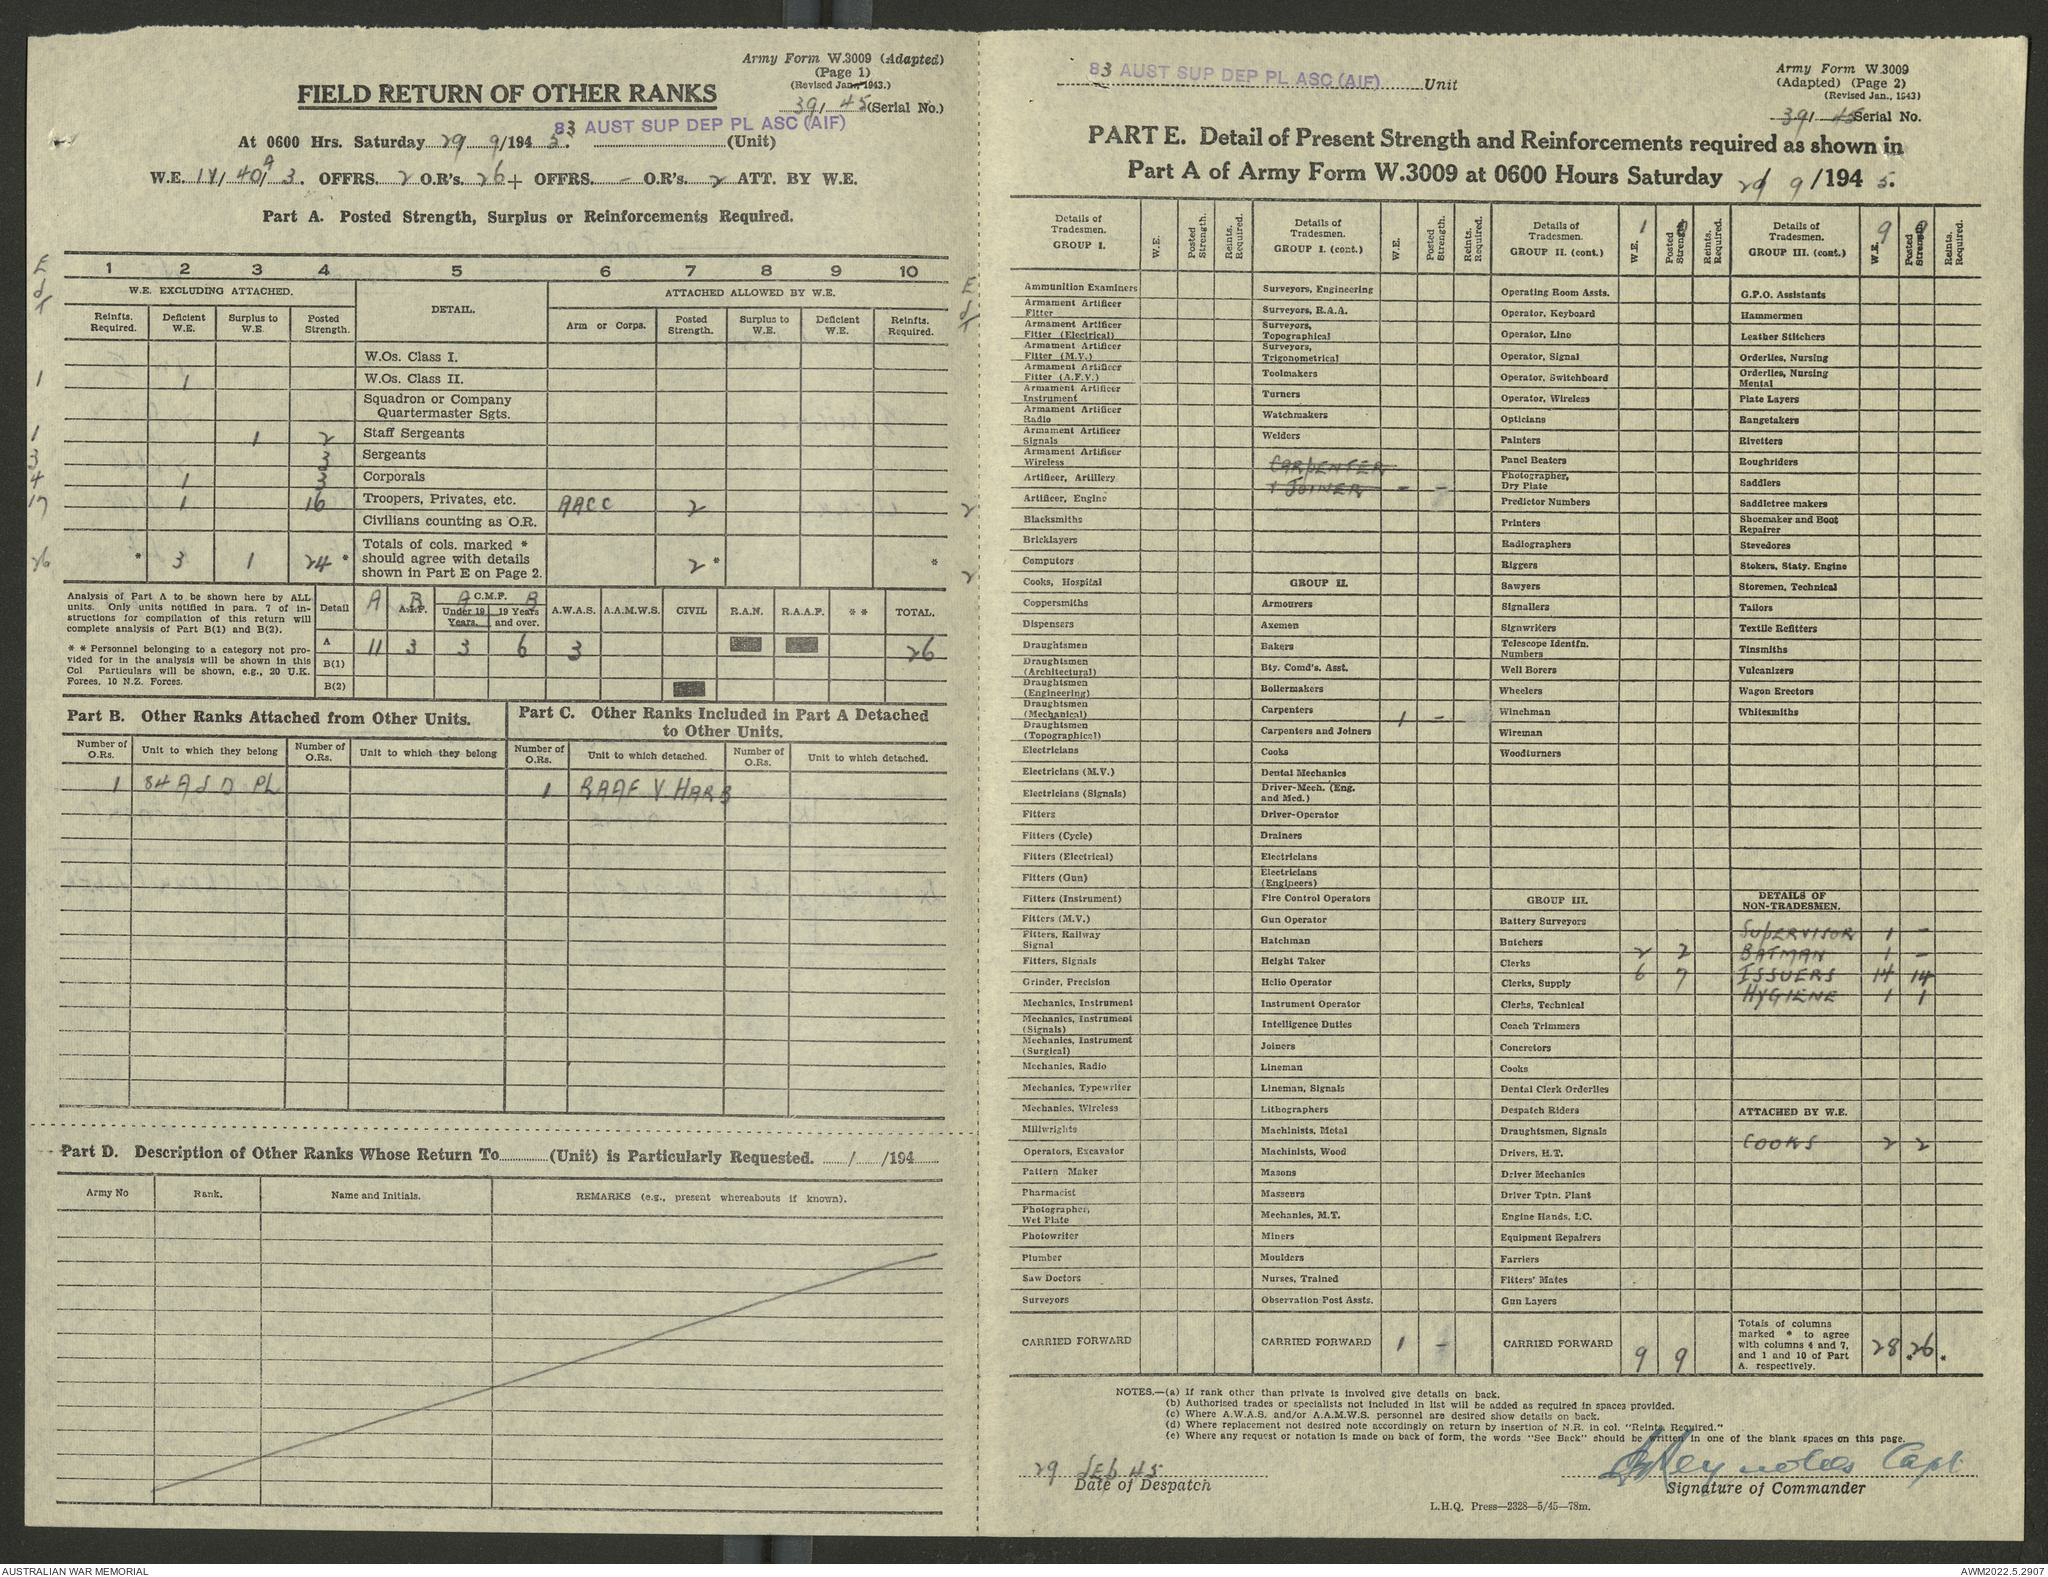 Army Form W.3009 (Adapted)
(Page 1)
(Revised Jan., 1943.)
39/ 45 (Serial No.)
FIELD RETURN OF OTHER RANKS
83 AUST SUP DEP PL ASC (AIF)
At 0600 Hrs. Saturday 29 9/194 5. (Unit)
W.E. 3. OFFRS. 2 O.R's. 26 + OFFRS. - O.R's. 2 ATT. BY W.E.
Part A. Posted Strength, Surplus or Reinforcements Required.
1 2 3 4 5 6 7 8 9 10
W.E. EXCLUDING ATTACHED. DETAIL. ATTACHED ALLOWED BY W.E.
Reinfts. Required. Deficient W.E. Surplus to W.E. Posted Strength. Arm or Corps. Posted Strength. Surplus to W.E. Deficient W.E. Reinfts. Required.
W.Os. Class I.
1 1 W.Os. Class II.
Squadron or Company Quartermaster Sgts.
1 1 2 Staff Sergeants
3 3 Sergeants
4 1 3 Corporals
17 1 16 Troopers, Privates, etc. AACC 2 2
Civilians counting as O.R.
26 * 3 1 24 * Totals of cols. marked * should agree with details shown in Part E on Page 2. 2 * * 2
Analysis of Part A to be shown here by ALL units. Only units notified in para. 7 of instructions for compilation of this return will complete analysis of Part B(1) and B(2).
* * Personnel belonging to a category not provided for in the analysis will be shown in this Col Particulars will be shown, e.g., 20 U.K. Forces, 10 N.Z. Forces.
Detail A B A.I.F. A C.M.F. B Under 19 Years. 19 Years and over. A.W.A.S. A.A.M.W.S. CIVIL R.A.N. R.A.A.F. * * TOTAL.
A 11 3 3 6 3 26
B(1)
B(2)
Part B. Other Ranks Attached from Other Units.
Part C. Other Ranks Included in Part A Detached to Other Units.
Number of O.Rs. Unit to which they belong Number of O.Rs. Unit to which they belong Number of O.Rs. Unit to which detached. Number of O.Rs. Unit to which detached.
1 84 A S D PL 1 RAAF V HARB
Part D. Description of Other Ranks Whose Return To (Unit) is Particularly Requested. / /194
Army No Rank. Name and Initials. REMARKS (e.g., present whereabouts if known).
83 AUST SUP DEP PL ASC (AIF) Unit
Army Form W.3009
(Adapted) (Page 2)
(Revised Jan., 1943)
39/ 45 Serial No.
PART E. Detail of Present Strength and Reinforcements required as shown in
Part A of Army Form W.3009 at 0600 Hours Saturday 29 9 /194 5.
Details of Tradesmen. GROUP I. W.E. Posted Strength. Reints. Required.
Ammunition Examiners
Armament Artificer Fitter
Armament Artificer Fitter (Electrical)
Armament Artificer Fitter (M.V.)
Armament Artificer Fitter (A.F.V.)
Armament Artificer Instrument
Armament Artificer Radio
Armament Artificer Signals
Armament Artificer Wireless
Artificer, Artillery
Artificer, Engine
Blacksmiths
Bricklayers
Computors
Cooks, Hospital
Coppersmiths
Dispensers
Draughtsmen
Draughtsmen (Architectural)
Draughtsmen (Engineering)
Draughtsmen (Mechanical)
Draughtsmen (Topographical)
Electricians
Electricians (M.V.)
Electricians (Signals)
Fitters
Fitters (Cycle)
Fitters (Electrical)
Fitters (Gun)
Fitters (Instrument)
Fitters (M.V.)
Fitters, Railway Signal
Fitters, Signals
Grinder, Precision
Mechanics, Instrument
Mechanics, Instrument (Signals)
Mechanics, Instrument (Surgical)
Mechanics, Radio
Mechanics, Typewriter
Mechanics, Wireless
Millwrights
Operators, Excavator
Pattern Maker
Pharmacist
Photographer, Wet Plate
Photowriter
Plumber
Saw Doctors
Surveyors
CARRIED FORWARD
Details of Tradesmen. GROUP I. (cont.) W.E. Posted Strength. Reints. Required.
Surveyors, Engineering
Surveyors, R.A.A.
Surveyors, Topographical
Surveyors, Trigonometrical
Toolmakers
Turners
Watchmakers
Welders
CARPENTER
+ JOINER - -
GROUP II.
Armourers
Axemen
Bakers
Bty. Comd's. Asst.
Boilermakers
Carpenters 1 -
Carpenters and Joiners
Cooks
Dental Mechanics
Driver-Mech. (Eng. and Med.)
Driver-Operator
Drainers
Electricians
Electricians (Engineers)
Fire Control Operators
Gun Operator
Hatchman
Height Taker
Helio Operator
Instrument Operator
Intelligence Duties
Joiners
Lineman
Lineman, Signals
Lithographers
Machinists, Metal
Machinists, Wood
Masons
Masseurs
Mechanics, M.T.
Miners
Moulders
Nurses, Trained
Observation Post Assts.
CARRIED FORWARD 1 -
Details of Tradesmen. GROUP II. (cont.) 1 W.E. Posted Strength. Reints. Required.
Operating Room Assts.
Operator, Keyboard
Operator, Lino
Operator, Signal
Operator, Switchboard
Operator, Wireless
Opticians
Painters
Panel Beaters
Photographer, Dry Plate
Predictor Numbers
Printers
Radiographers
Riggers
Sawyers
Signallers
Signwriters
Telescope Identfn. Numbers
Well Borers
Wheelers
Winchman
Wireman
Woodturners
GROUP III.
Battery Surveyors
Butchers 2 2
Clerks
Clerks, Supply 6 7
Clerks, Technical
Coach Trimmers
Concretors
Cooks
Dental Clerk Orderlies
Despatch Riders
Draughtsmen, Signals
Drivers, H.T.
Driver Mechanics
Driver Tptn. Plant
Engine Hands, I.C.
Equipment Repairers
Farriers
Fitters' Mates
Gun Layers
CARRIED FORWARD 9 9
Details of Tradesmen. GROUP III. (cont.) 9 9 W.E. Posted Strength. Reints. Required.
G.P.O. Assistants
Hammermen
Leather Stitchers
Orderlies, Nursing
Orderlies, Nursing Mental
Plate Layers
Rangetakers
Rivetters
Roughriders
Saddlers
Saddletree makers
Shoemaker and Boot Repairer
Stevedores
Stokers, Staty. Engine
Storemen, Technical
Tailors
Textile Refitters
Tinsmiths
Vulcanizers
Wagon Erectors
Whitesmiths
DETAILS OF NON-TRADESMEN.
SUPERVISOR 1 -
BATMAN 1 -
ISSUERS 14 14
HYGIENE 1 1
ATTACHED BY W.E.
COOKS 2 2
Totals of columns marked * to agree with columns 4 and 7, and 1 and 10 of Part A. respectively. 28 * 26 *
NOTES.—(a) If rank other than private is involved give details on back.
(b) Authorised trades or specialists not included in list will be added as required in spaces provided.
(c) Where A.W.A.S. and/or A.A.M.W.S. personnel are desired show details on back.
(d) Where replacement not desired note accordingly on return by insertion of N.R. in col. "Reints. Required."
(e) Where any request or notation is made on back of form, the words "See Back" should be written in one of the blank spaces on this page.
29 SEP 45
Date of Despatch
Reynolds Capt
Signature of Commander
L.H.Q. Press—2328—5/45—78m.
AUSTRALIAN WAR MEMORIAL
AWM2022.5.2907